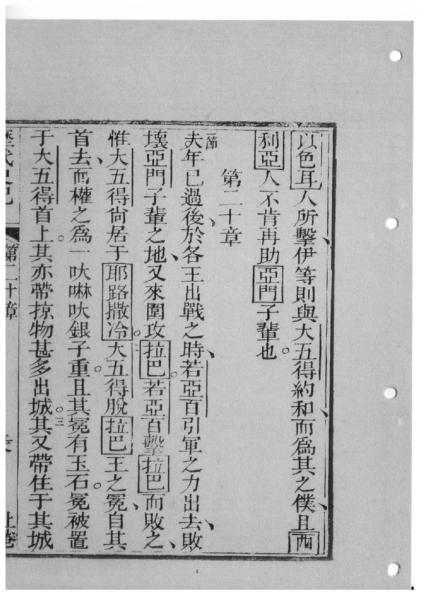 以色耳人所擊伊等則與大五得約和而為其之僕且西
利亞人不肯再助亞門子輩也
第二十章
一節
夫年已過後於各王出戰之時若亞百引軍之力出去敗
壞亞門子輩之地又來圍攻拉巴若亞百擊拉巴而敗之
惟大五得尚居于耶路撒冷二大五得脫拉巴王之冕自其
首去而權之為一吠啉吠銀子重且其冕有玉石冕被置
于大五得首上其亦帶掠物甚多出城三其又帶住于其城
歷代史記 第二十章